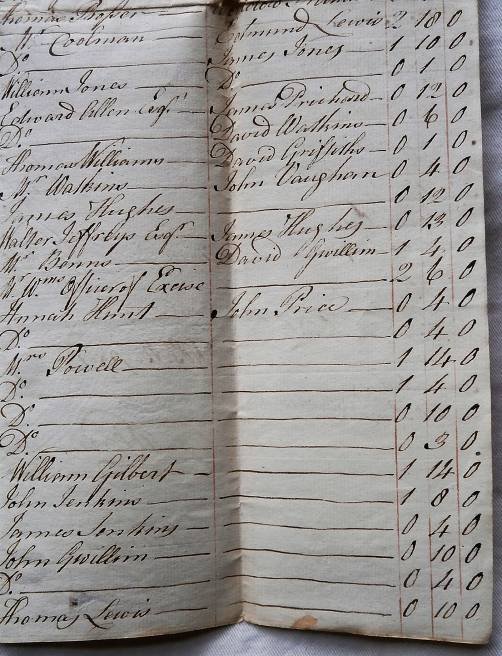 Thomas Prosser — Edmund Lewis 2 18 0
Mr Coolman — James Jones 1 10 0
Do — Do 0 1 0
William Jones — James Prichard 0 12 0
Edward Allen Esqr — David Watkins 0 6 0
Do — David Griffiths 0 1 0
Thomas Williams — John Vaughan 0 4 0
Mr Watkins — 0 12 0
James Hughes — James Hughes 0 13 0
Walter Jeffreys Esqr — David Gwillim 1 4 0
Mr Benns — 2 6 0
Officer of Excise — John Price 0 4 0
Annah Hunt — 0 4 0
Do — 1 14 0
Mrs Powell — 1 4 0
Do — 0 10 0
Do — 0 3 0
Do — 1 14 0
William Gilbert — 1 8 0
John Jenkins — 0 4 0
James Jenkins — 0 10 0
John Gwillim — 0 4 0
Do — 0 10 0
Thomas Lewis —